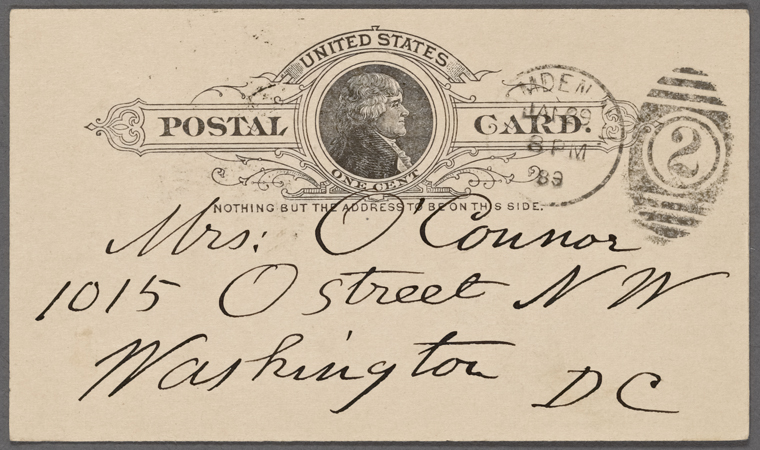 UNITED STATES
POSTAL CARD.
ONE CENT
NOTHING BUT THE ADDRESS TO BE ON THIS SIDE.
MDEN
JAN 29
8 PM
89
2
Mrs: O'Connor
1015 O street N W
Washington D C